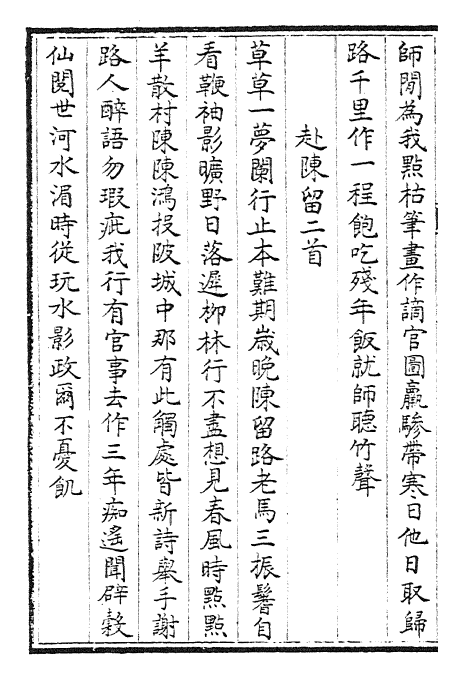 師閒為我㸃枯筆畫作謫官圖羸驂帶寒日他日取歸
路千里作一程飽吃殘年飯就師聴竹聲
赴陳留二首
草草一夢闌行止本難期歳晚陳留路老馬三振鬐自
看鞭袖影曠野日落遲栁林行不盡想見春風時㸃㸃
羊散村陳陳鴻投陂城中那有此觸處皆新詩舉手謝
路人醉語勿瑕疵我行有官事去作三年痴遙聞辟榖
仙閱世河水湄時從玩水影政爾不憂飢